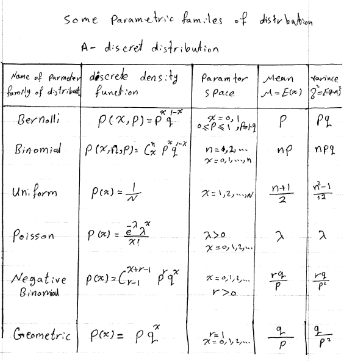 Some Parametric familes of distrbution
A- discret distribution
Name of Parmeter family of distribut | discrete density function | Paramtor space | Mean M=E(x) | varince
Bernolli | P(x,p)=p^x q^1-x | x=0,1 0≤p≤1, | P | Pq
Binomial | P(x,n,p)=C^n_x p^x q | n=1,2,... x=0,1,...,n | np | npq
Uniform | P(x)=1/N | x=1,2,...,N | n+1/2 | n²-1/12
Poisson | P(x)=e^-λ λ^x/x! | λ>0 x=0,1,2,... | λ | λ
Negative Binomial | P(x)=C^x+r-1_r-1 p^r q^x | x=0,1,2,... r>0 | rq/p | rq/p²
Geometric | P(x)= p q^x | r=1 x=0,1,2,... | q/p | q/p²